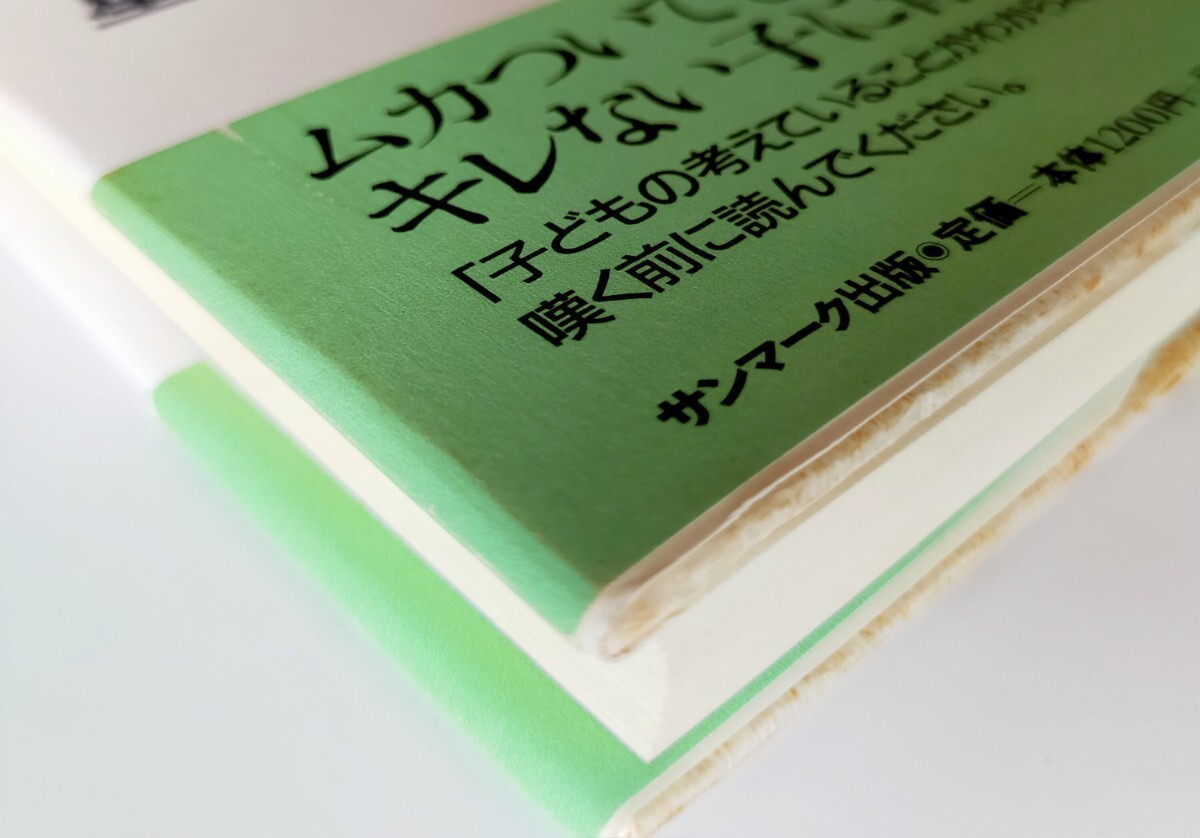 ムカついても
キレない子に
「子どもの考えていることがわから
嘆く前に読んでください。
サンマーク出版◉定価=本体1200円